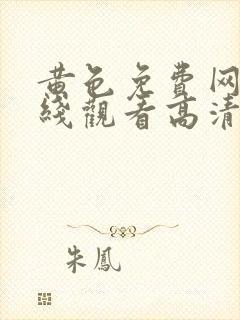 黄色免费网
綫觀看高清
朱鳳